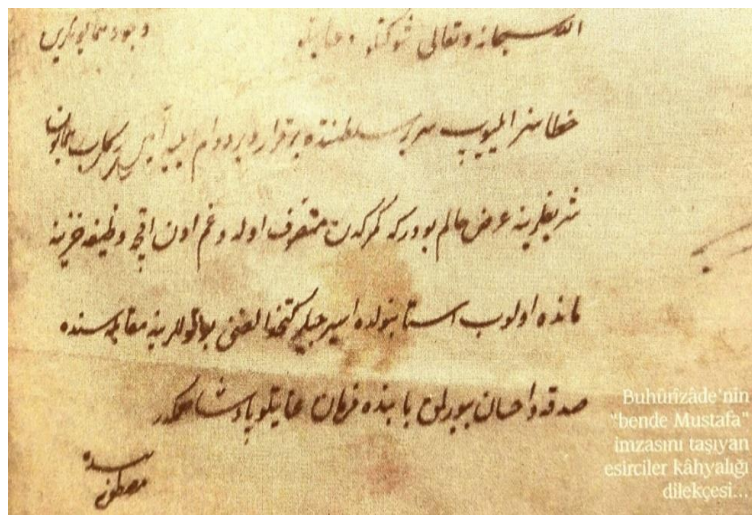 الله سبحانه وتعالى شوكتلو عنايتلو وجود همايونلرين
خطاسز ايليوب سرير سلطنتده برقرار و بردوام ايليه آمين ركاب همايون
شريفلرينه عرض حالم بودركه كمركدن متصرف اولدوغم اون اقچه وظيفه خزينه
مانده اولوب استانبولده اسيرجيلر كتخدالغنى بو قوللرينه مقابله سنده
صدقه و احسان بيورلمق بابنده فرمان عنايتلو پادشاهمكدر
بنده
مصطفى
Buhûrîzâde'nin
"bende Mustafa"
imzasını taşıyan
esirciler kâhyalığı
dilekçesi...